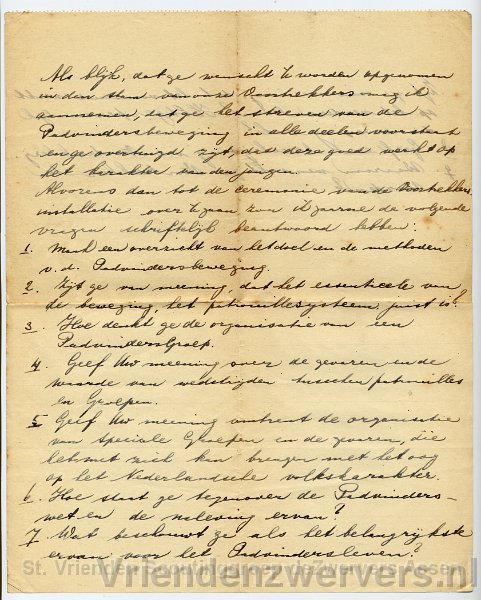 Als blijk, dat ge wenscht te worden opgenomen
in den stam van onze Voortrekkers mag ik
aannemen, dat ge het streven van de
Padvindersbeweging in alle deelen voorstaat
en ge overtuigd zijt, dat deze goed werkt op
het karakter van den jongen.
Alvorens dan tot de ceremonie van de Voortrekkers
installatie over te gaan zou ik gaarne de volgende
vragen schriftelijk beantwoord hebben:
1. Maak een overzicht van het doel en de methoden
v.d. Padvindersbeweging.
2. Zijt ge van meening, dat het essentieele van
de beweging, het patrouillesysteem, juist is?
3. Hoe denkt ge de organisatie van een
Padvindersgroep.
4. Geef Uw meening over de gevaren en de
waarde van wedstrijden tusschen patrouilles
en Groepen.
5. Geef Uw meening omtrent de organisatie
van speciale Groepen en de gevaren, die
het met zich kan brengen met het oog
op het Nederlandsche volkskarakter.
6. Hoe staat ge tegenover de Padvinders-
wet en de naleving ervan?
7. Wat beschouwt ge als het belangrijkste
ervan voor het Padvindersleven?
St. Vrienden Scoutinggroep de Zwervers Assen
Vriendenzwervers.nl